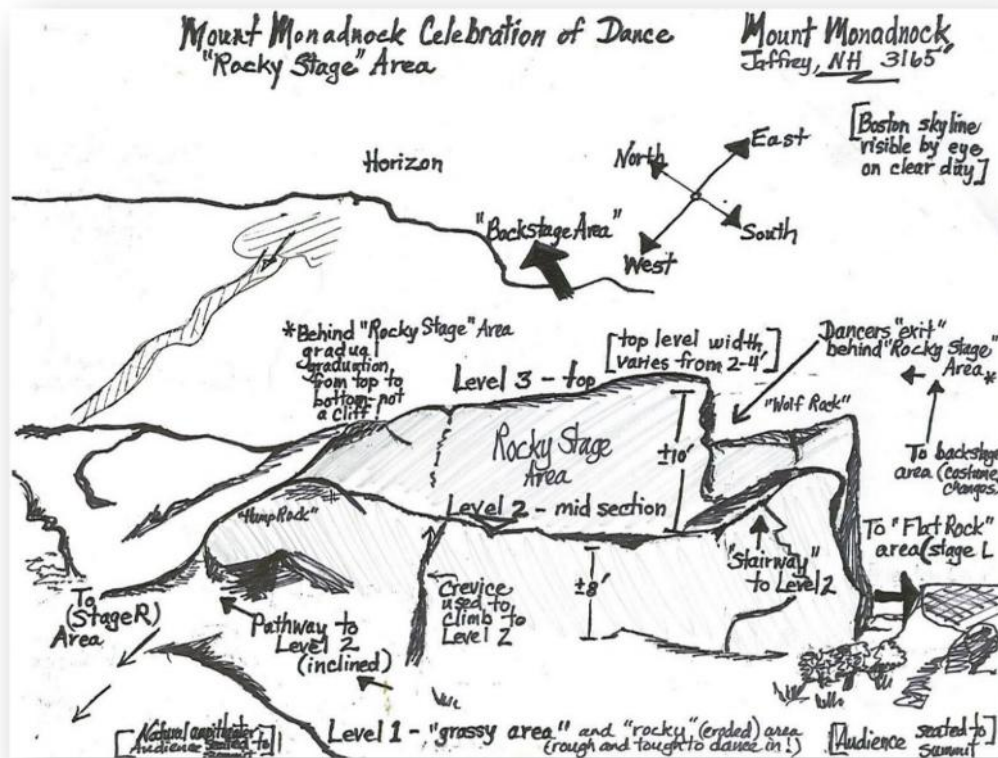 Mount Monadnock Celebration of Dance
"Rocky Stage" Area
Mount Monadnock
Jaffrey, NH 3165'
[Boston skyline
visible by eye
on clear day]
Horizon
North
East
South
West
"Backstage Area"
*Behind "Rocky Stage" Area
gradual
graduation
from top to
bottom-not
a cliff!
[top level width
varies from 2-4']
Dancers "exit"
behind "Rocky Stage"
Area *
Level 3 - top
"Wolf Rock"
Rocky Stage
Area
±10'
To backstage
area (costume
changes)
Level 2 - mid section
"Hump Rock"
To "Flat Rock"
area (stage L
"Stairway"
to Level 2
±8'
Crevice
used to
climb to
Level 2
To
(Stage R)
Area
Pathway to
Level 2
(inclined)
[Natural
Audience seated to
Level 1 - "grassy area" and "rocky" (eroded) area
(rough and tough to dance in!)
[Audience seated to
summit]